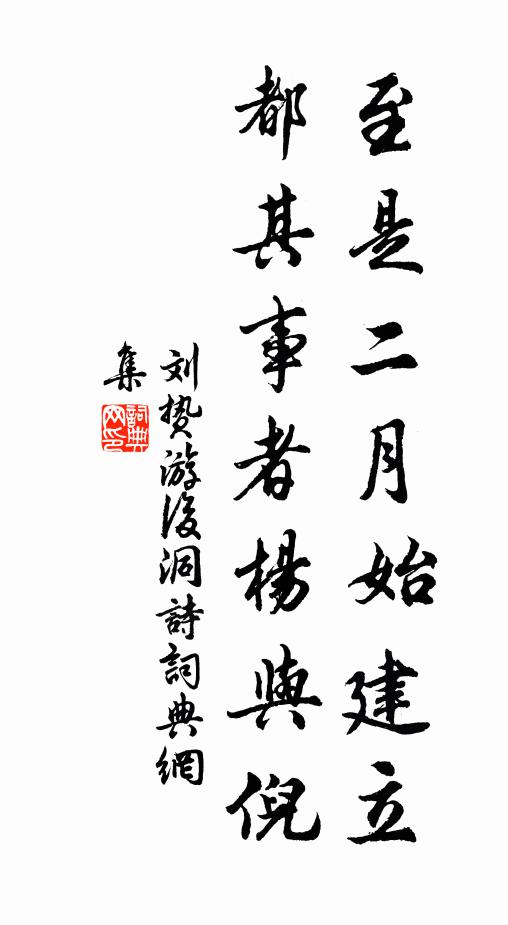 至是二月始建立
都其事者楊與倪
刘挚游後洞詩詞典網
集
詞典网印